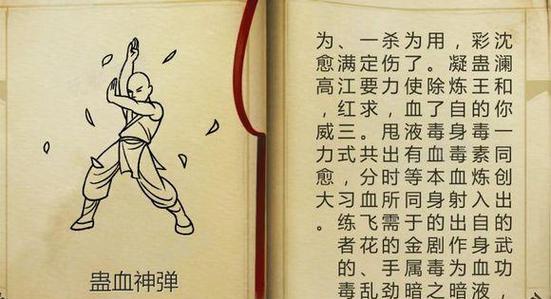 沈澜和你一同创出的武功，
彩蛊王的毒素炼入自身血液，
，凝炼自身毒血射出作为暗
用。除了毒血本身的剧毒之
为了使血液有等同于金属暗
杀伤力，甩出时所需的手劲
一定要求。共分血飞花、乱
、满江红三式，习练者的毒
为愈高，威力愈大。
蛊血神弹